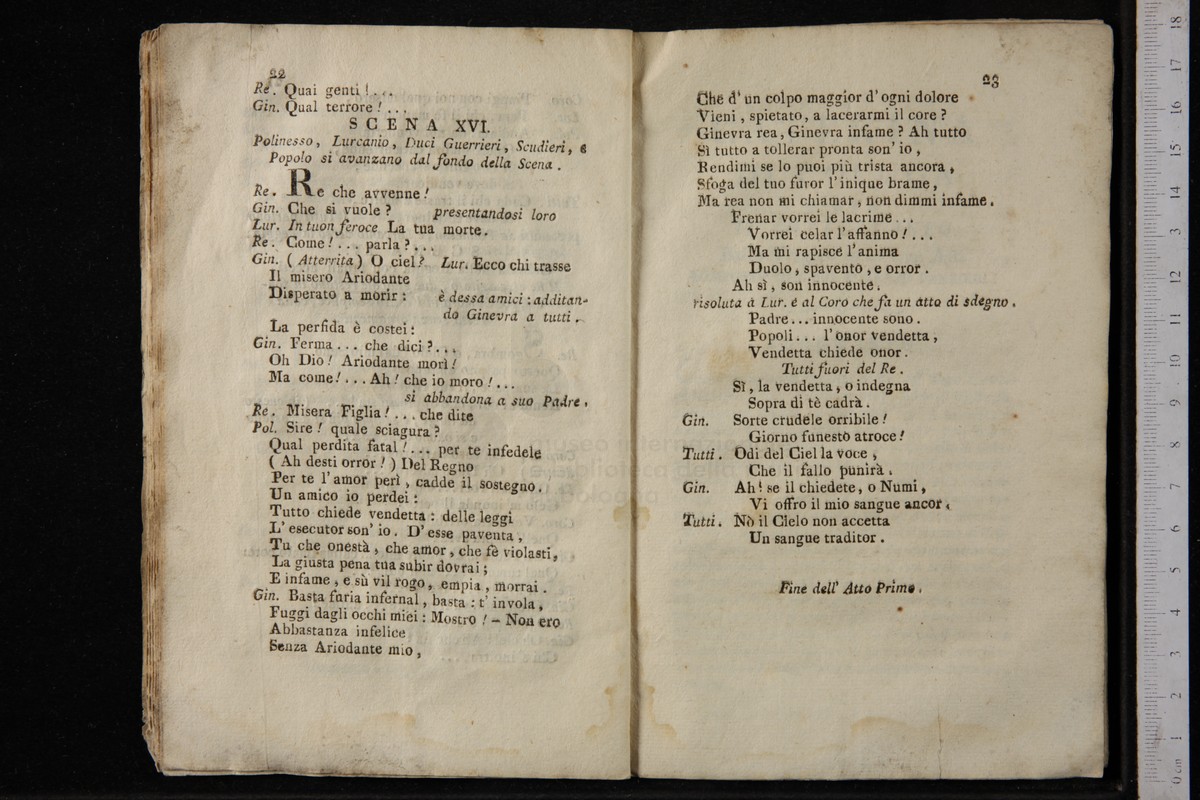 22
Re. Quai genti !...
Gin. Qual terrore !...
SCENA XVI.
Polinesso, Lurcanio, Duci Guerrieri, Scudieri, e
Popolo si avanzano dal fondo della Scena.
Re. Re che avvenne !
Gin. Che si vuole ? presentandosi loro
Lur. In tuon feroce La tua morte.
Re. Come !... parla ?...
Gin. (Atterrita) O ciel ? Lur. Ecco chi trasse
Il misero Ariodante
Disperato a morir : è dessa amici : additan-
do Ginevra a tutti.
La perfida è costei :
Gin. Ferma... che dici ?...
Oh Dio ! Ariodante morì !
Ma come !... Ah ! che io moro !...
si abbandona a suo Padre,
Re. Misera Figlia !... che dite
Pol. Sire ! quale sciagura ?
Qual perdita fatal !... per te infedele
( Ah desti orror ! ) Del Regno
Per te l' amor perì, cadde il sostegno.
Un amico io perdei :
Tutto chiede vendetta : delle leggi
L' esecutor son' io. D' esse paventa,
Tu che onestà, che amor, che fè violasti,
La giusta pena tua subir dovrai ;
E infame, e sù vil rogo, empia, morrai.
Gin. Basta furia infernal, basta : t' invola,
Fuggi dagli occhi miei : Mostro ! - Non ero
Abbastanza infelice
Senza Ariodante mio,
23
Che d' un colpo maggior d' ogni dolore
Vieni, spietato, a lacerarmi il core ?
Ginevra rea, Ginevra infame ? Ah tutto
Sì tutto a tollerar pronta son' io,
Rendimi se lo puoi più trista ancora,
Sfoga del tuo furor l' inique brame,
Ma rea non mi chiamar, non dimmi infame.
Frenar vorrei le lacrime...
Vorrei celar l' affanno !...
Ma mi rapisce l' anima
Duolo, spavento, e orror.
Ah sì, son innocente.
risoluta à Lur. é al Coro che fa un atto di sdegno.
Padre... innocente sono.
Popoli... l' onor vendetta,
Vendetta chiede onor.
Tutti fuori del Re.
Sì, la vendetta, o indegna
Sopra di tè cadrà.
Gin. Sorte crudele orribile !
Giorno funesto atroce !
Tutti. Odi del Ciel la voce,
Che il fallo punirà.
Gin. Ah ! se il chiedete, o Numi,
Vi offro il mio sangue ancor,
Tutti. Nò il Cielo non accetta
Un sangue traditor.
Fine dell' Atto Primo.
0 cm 1 2 3 4 5 6 7 8 9 10 11 12 13 14 15 16 17 18